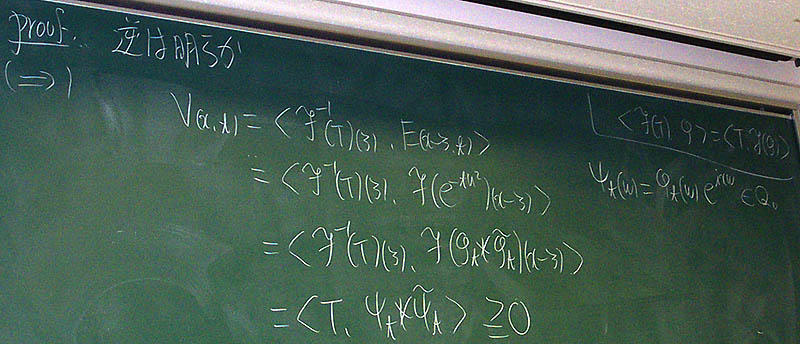 proof. 逆は明らか
(⇒)
V(x,t) = < ℱ⁻¹(T)(ξ), E(x-ξ,t) >
= < ℱ⁻¹(T)(ξ), ℱ(e^{-tu²})(x-ξ) >
= < ℱ⁻¹(T)(ξ), ℱ(φ_t * φ̃_t)(x-ξ) >
= < T, ψ_t * ψ̃_t > ≧ 0
< ℱ(T), φ > = < T, ℱ(φ) >
ψ_t(u) = φ_t(u) e^{ixu} ∈ Q₀